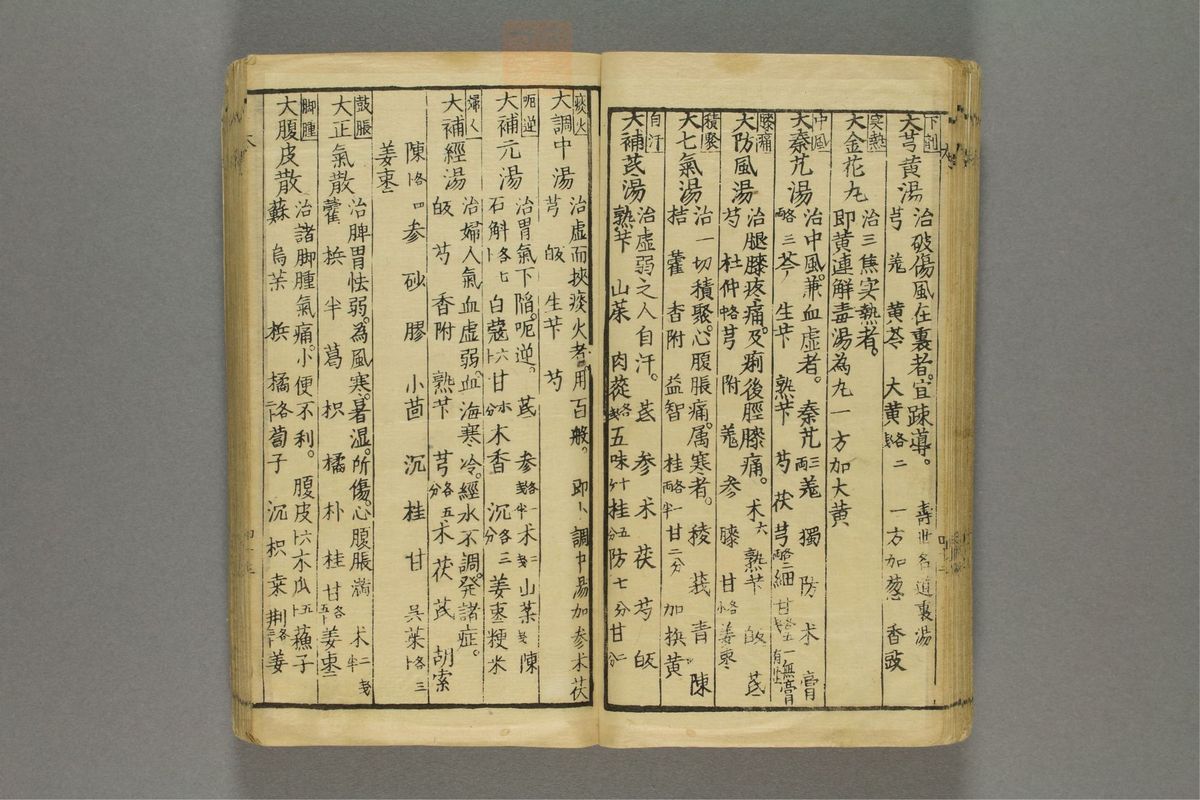 下剤
大芎黄湯
治破傷風在裏者。宜疎導。 壽世名通裏湯
芎 羗 黄芩 大黄 各二戋 一方加葱 香豉
実熱
大金花丸
治三焦实熱者。
即黄連解毒湯為丸一方加大黄
中風
大秦艽湯
治中風。兼血虚者。 秦艽 三両 羗 獨 防 术 膏
三 芩 生芐 熟芐 芍 茯 芎 細 甘 一無膏
膝痛
大防風湯
治腿膝疼痛。及痢後脛膝痛。 术 六 熟芐 皈 芪
芍 杜仲 芎 附 羗 参 膝 甘 姜枣
積聚
大七氣湯
治一切積聚。心腹脹痛。属寒者。 稜 莪 青 陳
桔 藿 香附 益智 桂 甘 二分 加 黄
自汗
大補芪湯
治虚弱之人自汗。 芪 参 术 茯 芍 皈
熟芐 山茱 肉蓯 五味 十 桂 五分 防 七分 甘 二分
痰火
大調中湯
治虚而挾痰火者。用百般。 即 調中湯加参术茯
芎 皈 生芐 芍
呃逆
大補元湯
治胃氣下陷。呃逆。 芪 参 术 山薬 陳
石斛 白蔻 甘 木香 沉 各三分 姜枣粳米
婦人
大補經湯
治婦人氣血虚弱。血海寒冷。經水不調。發諸症。
皈 芍 香附 熟芐 芎 各五分 术 茯 芪 胡索
陳 各四 参 砂 膠 小茴 沉 桂 甘 呉茱 各三
姜枣
鼓脹
大正氣散
治脾胃怯弱。為風寒。暑湿。所傷。心腹脹満 术 二戋半
藿 梹 半 葛 枳 橘 朴 桂 甘 姜枣
脚腫
大腹皮散
治諸脚腫氣痛。小便不利。 腹皮 六 木瓜 五 蘓子
蘇 烏茱 梹 橘 蔔子 沉 枳 桑 荆 姜